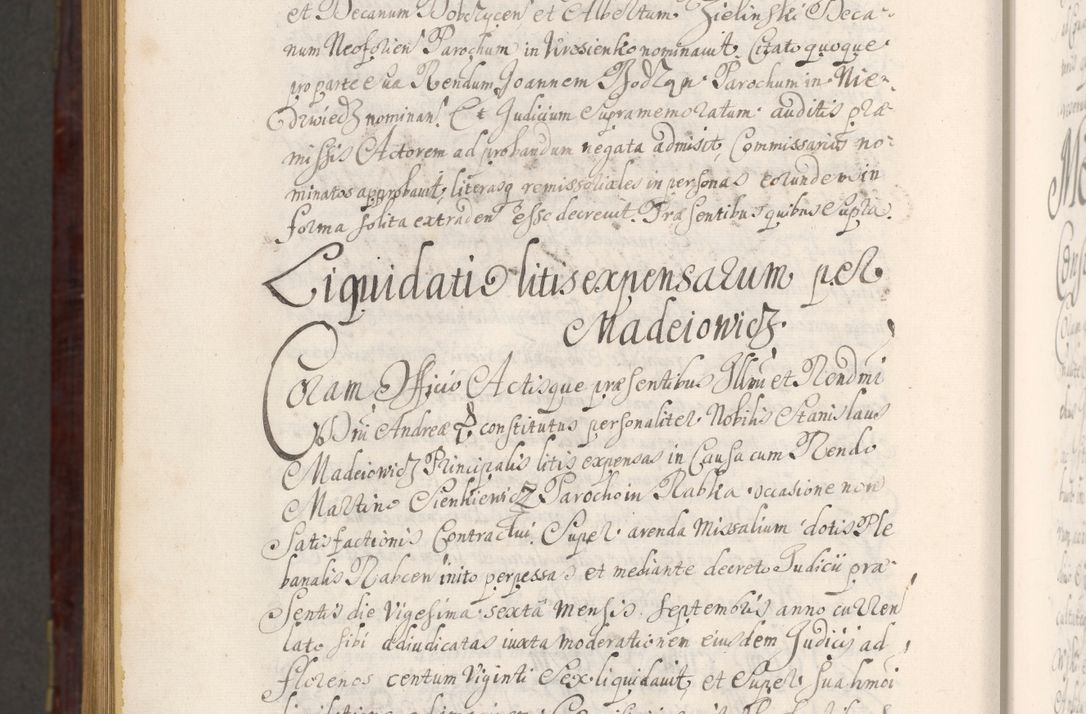 et Decanum Dobczycen et Albertum Zielinski Deca-
num Neoforien Parochum in Wrosienko nominavit. Citato quoque
pro parte sua Rendum Joannem Parochum in Nie-
dzwiedz nominan. Et Judicium supramemoratum auditis præ
missis Actorem ad probandum negata admisit, Commissarios no-
minatos approbavit, literasq remissoriales in personas eorundem in
forma solita extraden esse decrevit. Præsentibus quibus supra.
Liquidatio litis expensarum per
Madeiowicz
Coram Officio Actisque præsentibus Illmi et Rendmi
Dni Andreæ constitutus personaliter Nobilis Stanislaus
Madeiowicz Principalis litis expensas in Causa cum Rendo
Martino Sienkiewicz Parocho in Rabka occasione non
Satisfactionis Contractui Super arenda Missalium dotis Ple
banalis Rabcen inito perpessas et mediante decreto Judicii præ
sentis die Vigesima sexta Mensis Septembris anno curren
lato sibi adiudicatas iuxta moderationem eiusdem Judicij ad
florenos centum Viginti Sex liquidavit, et Super sua hmoi